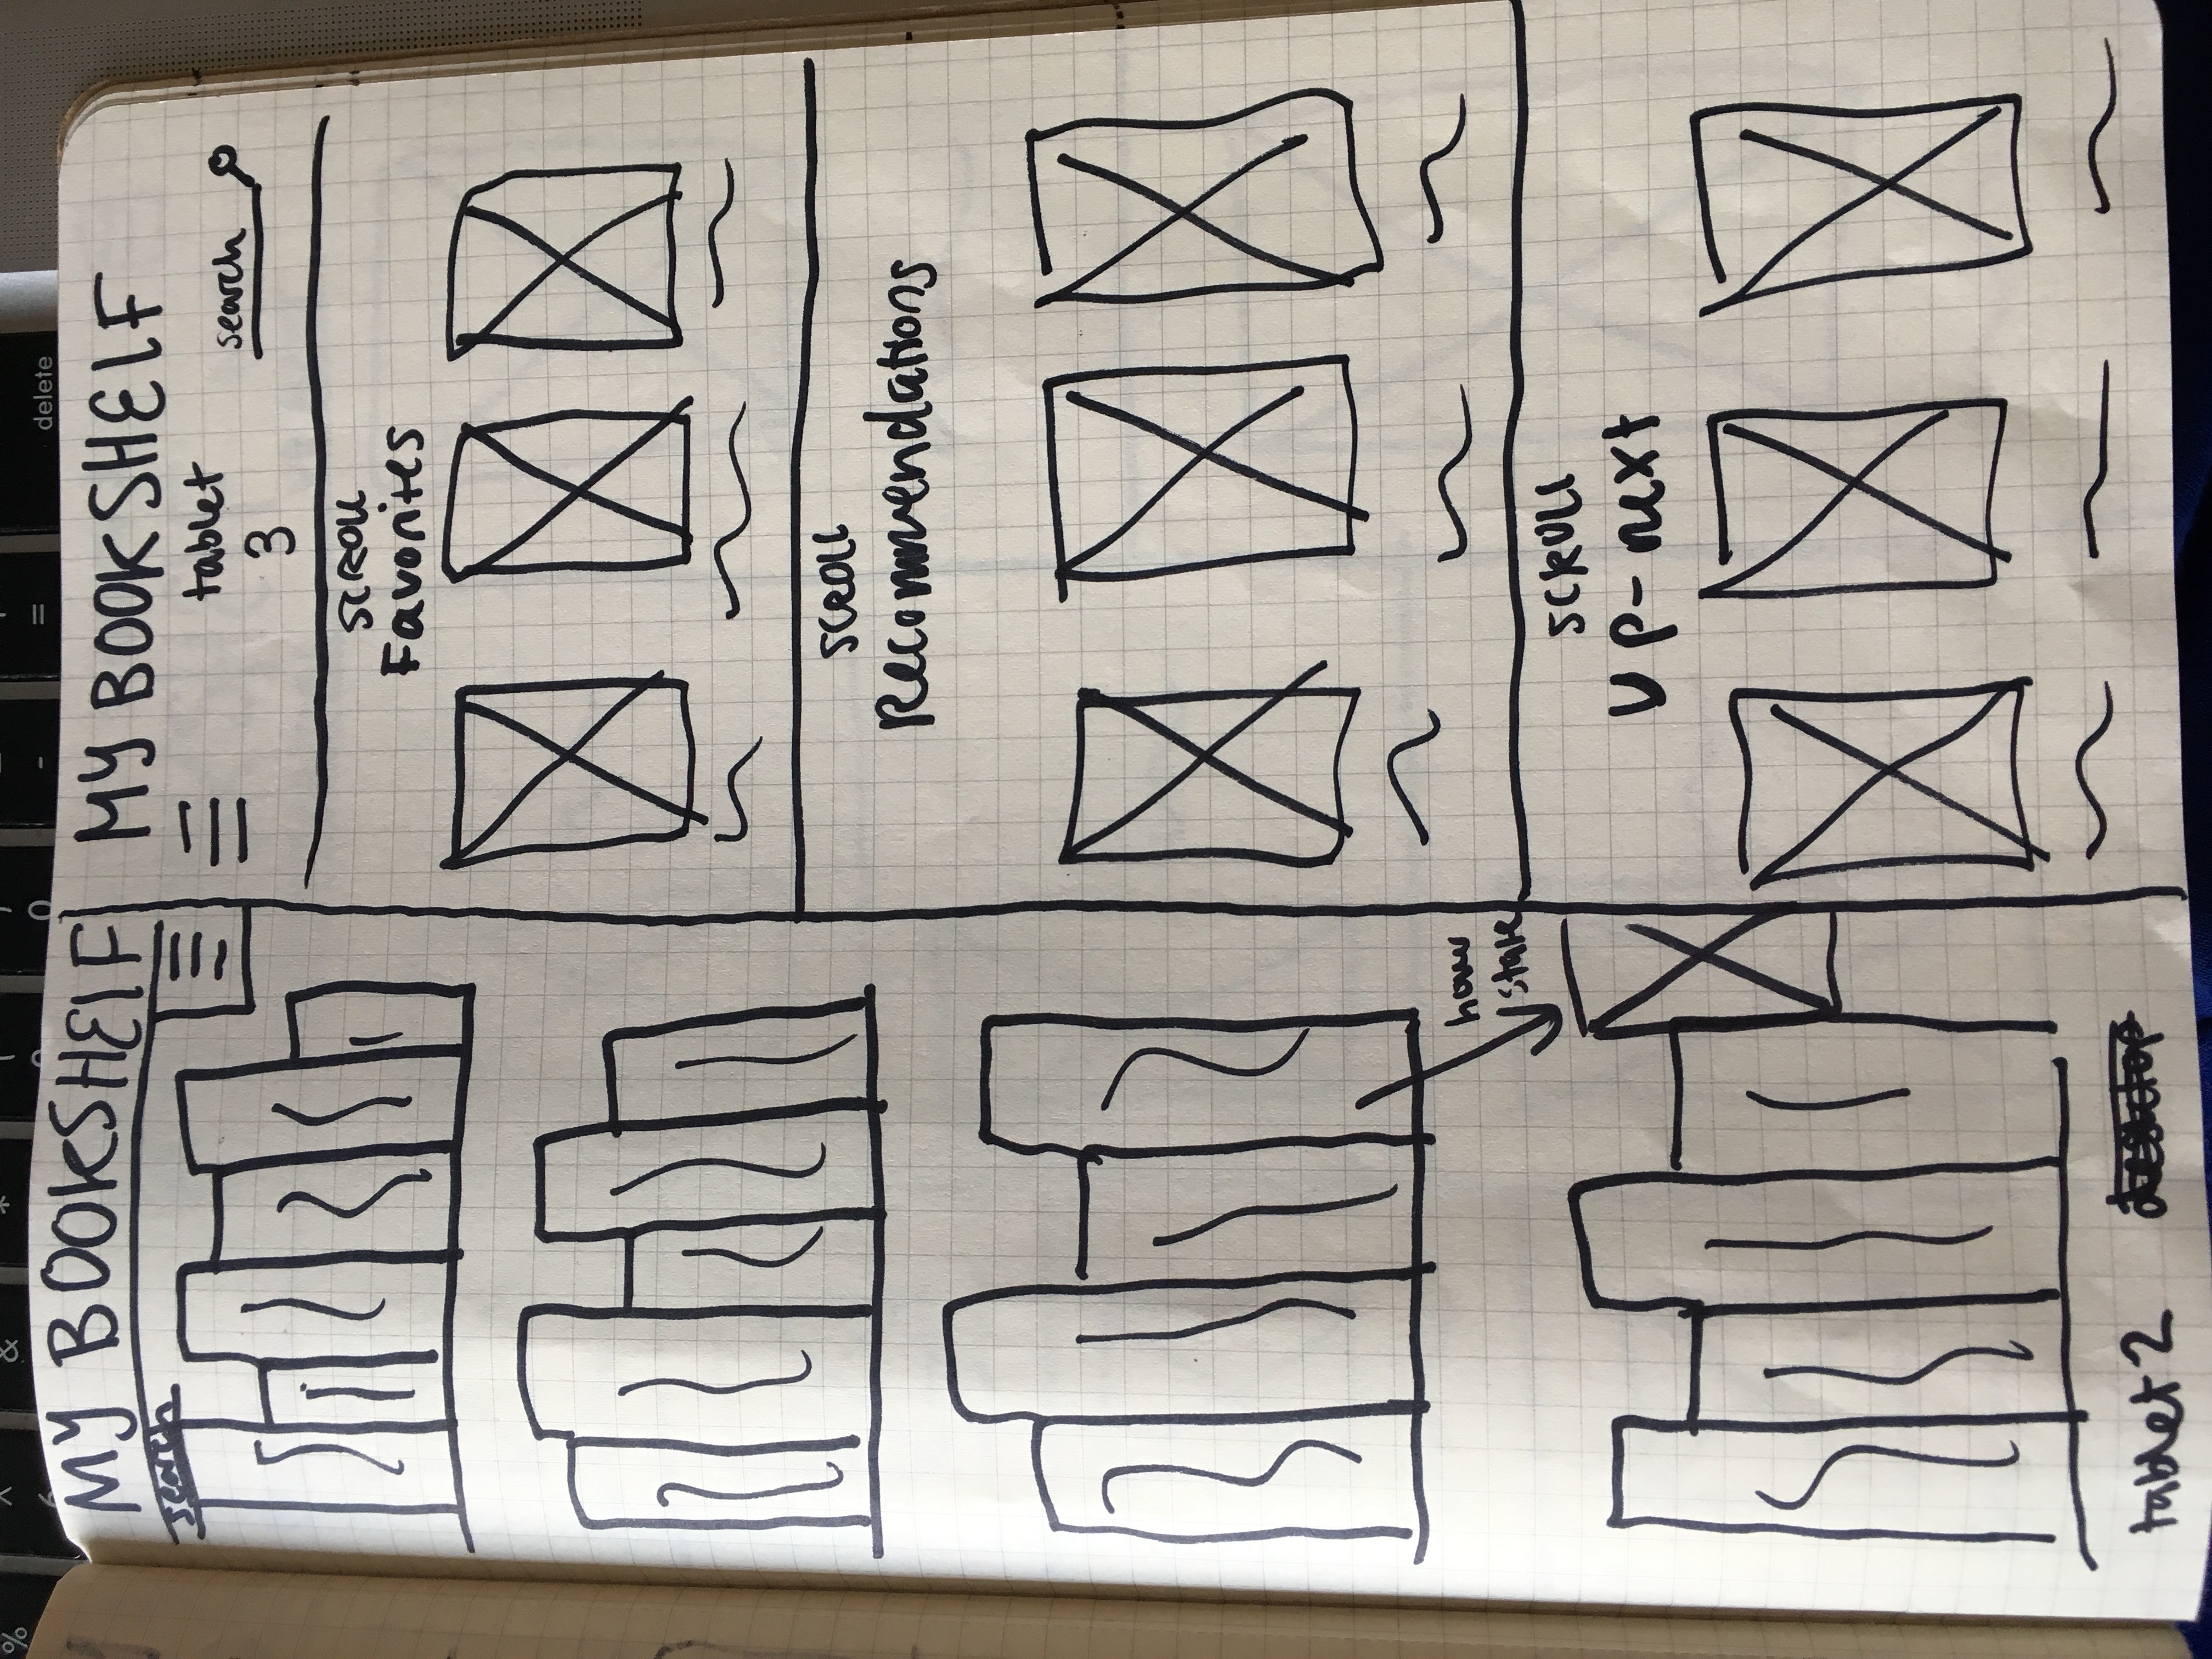 % ^ & * ( ) - +
6 9 0 - = delete
MY BOOKSHELF
search
hover
state
tablet 2
desktop
MY BOOKSHELF
tablet
search
3
SCROLL
Favorites
SCROLL
Recommendations
SCROLL
UP-next